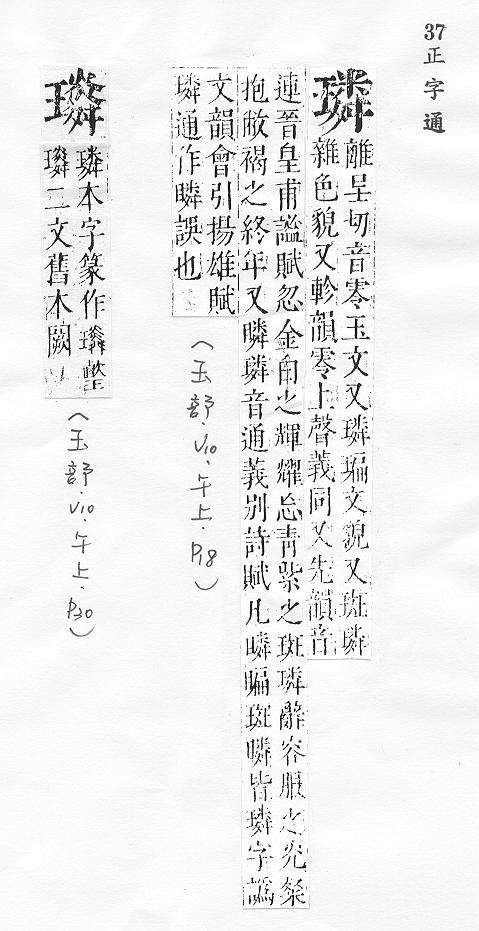 37
正字通
璘
離呈切音零玉文又璘㻞文貌又斑璘
雜色貌又軫韻零上聲義同又先韻音
連晉皇甫謐賦忽金白之輝耀忘青紫之斑璘辭容服之光粲
抱敝褐之終年又瞵璘音通義別詩賦凡瞵㻞斑瞵皆璘字譌
文韻會引揚雄賦
璘通作瞵誤也
(玉部.V10.午上.P18)
璘本字篆作
二文舊本闕
(玉部.V10.午上.P30)